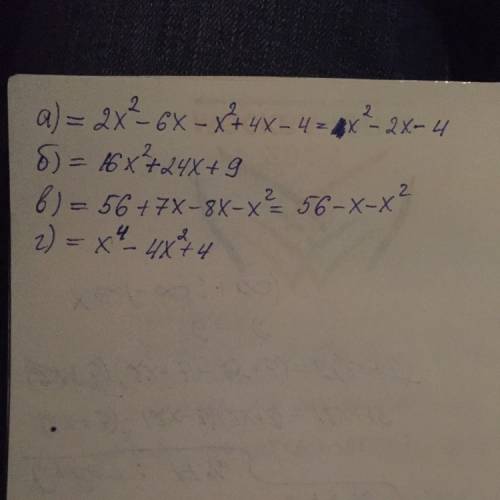 а) = 2x² - 6x - x² + 4x - 4 = x² - 2x - 4
б) = 16x² + 24x + 9
в) = 56 + 7x - 8x - x² = 56 - x - x²
г) = x⁴ - 4x² + 4